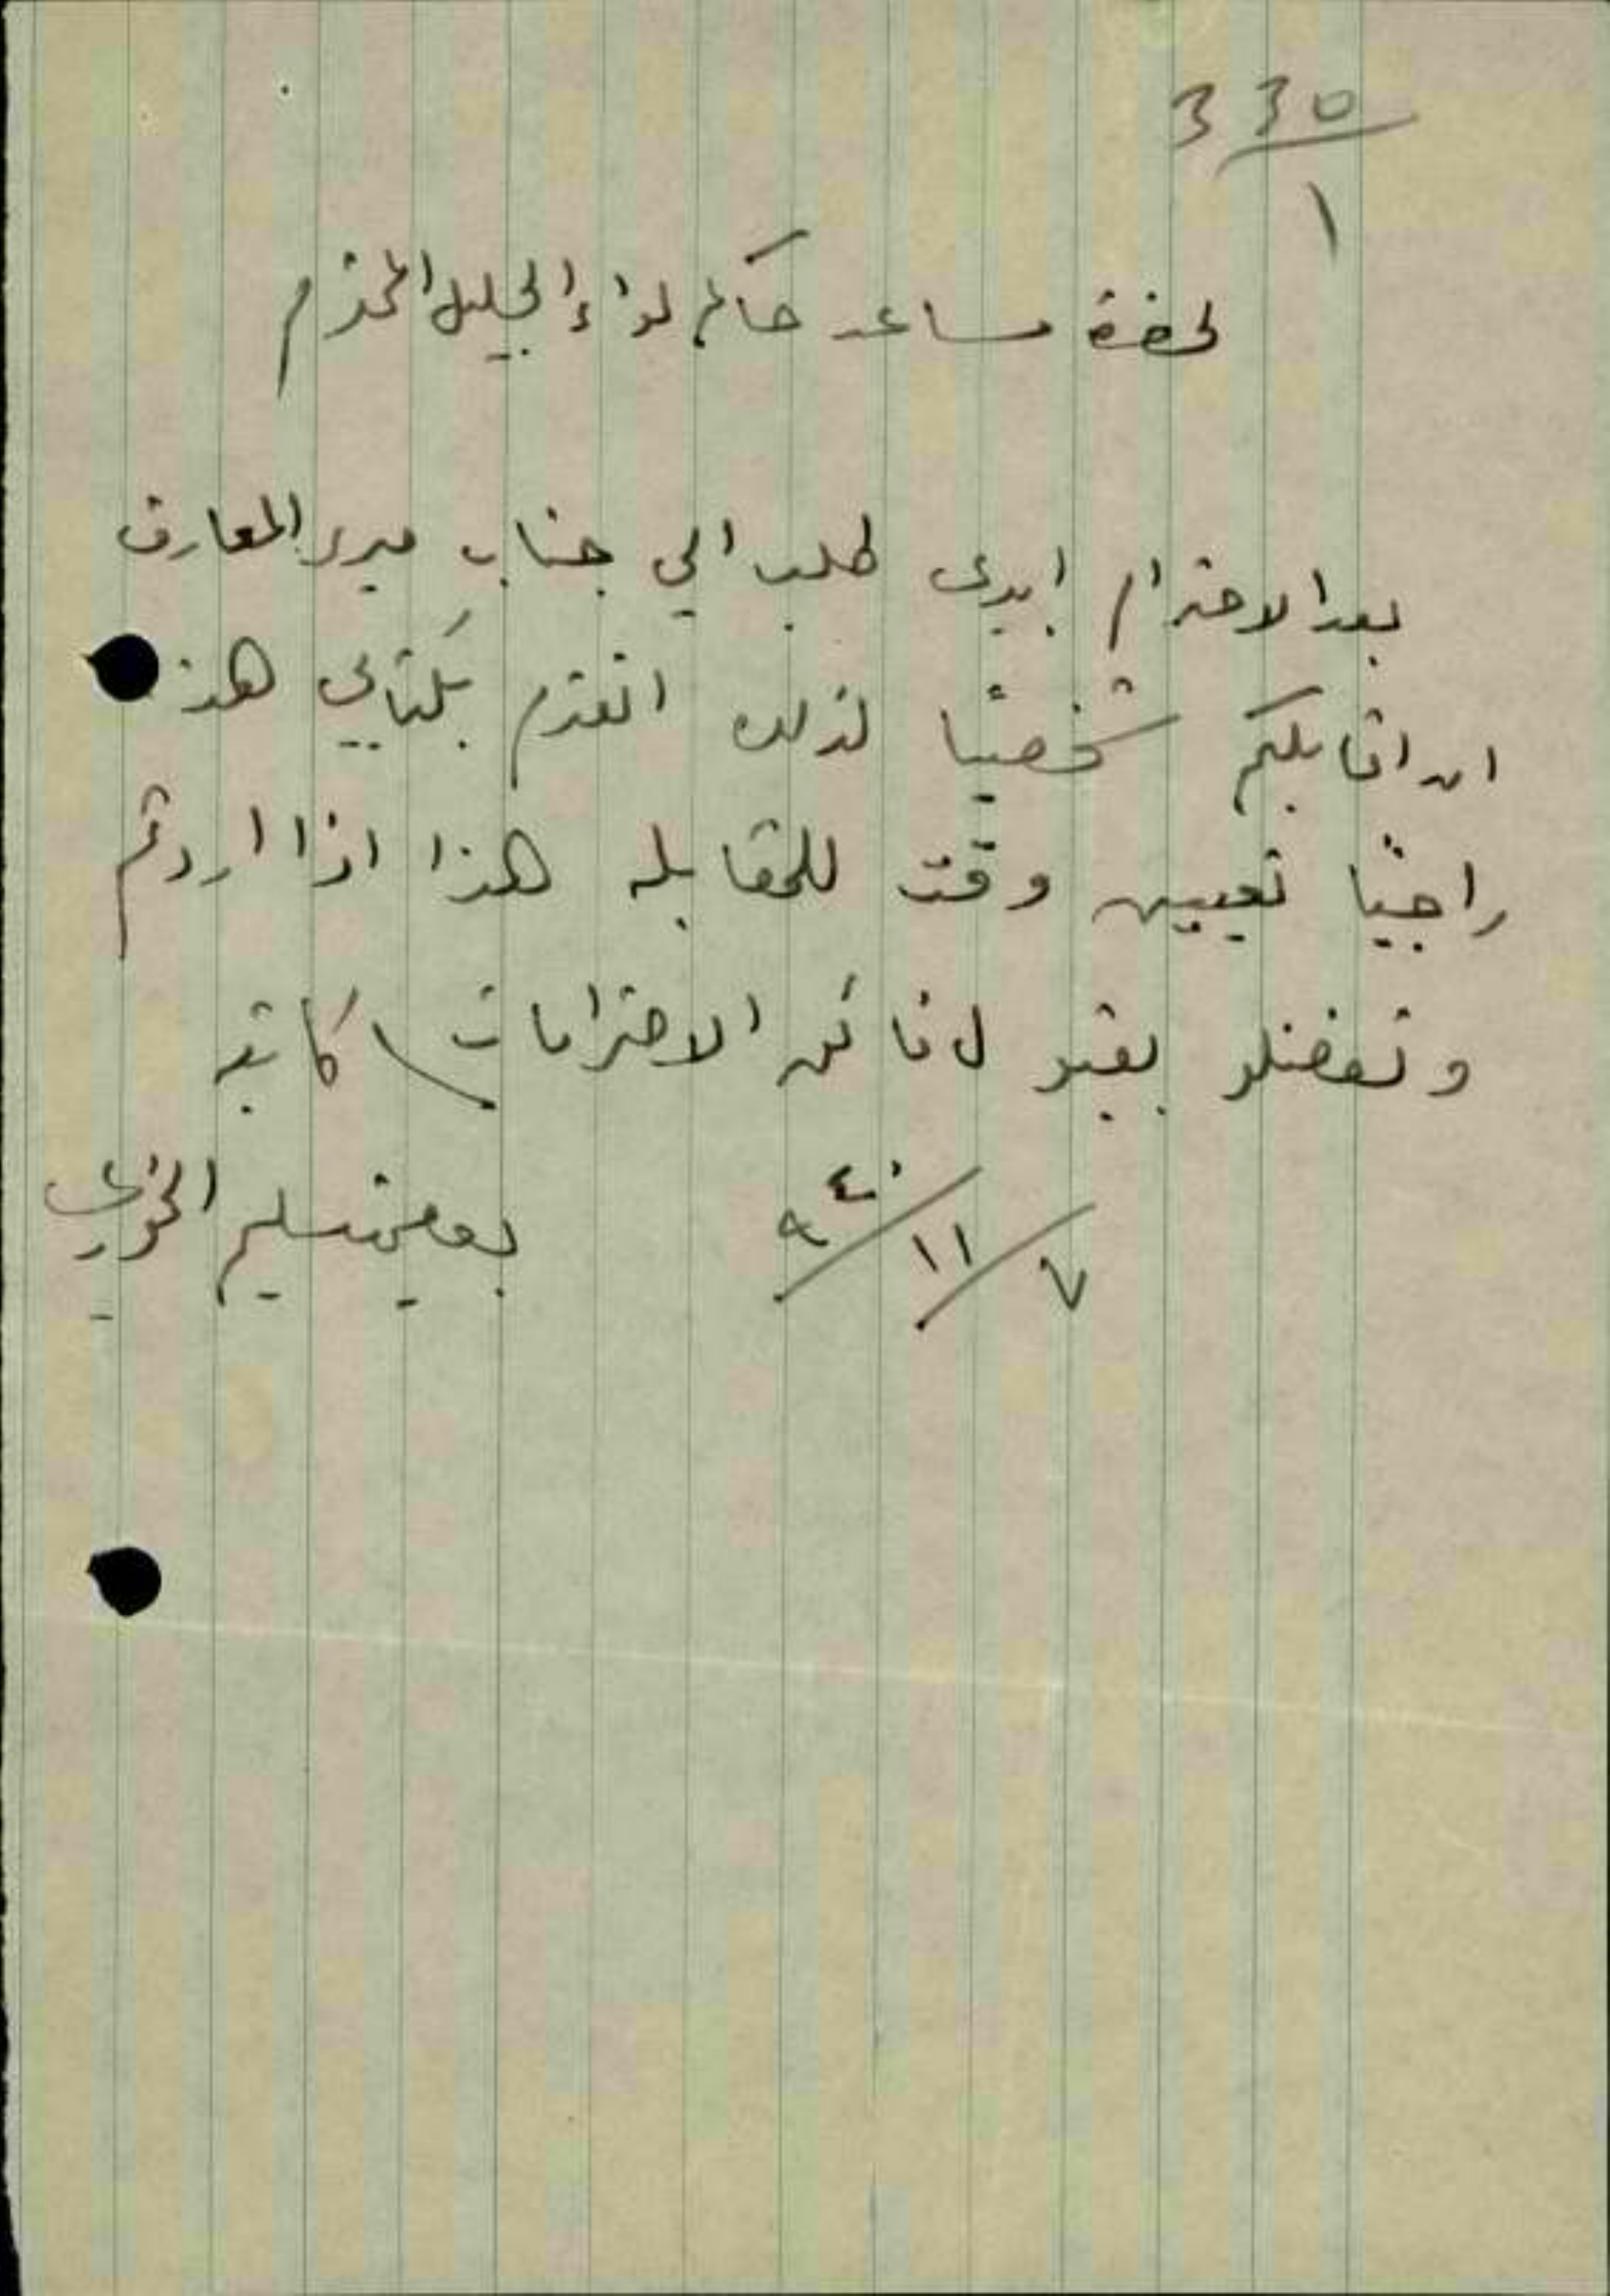 330
١
لحضرة مساعد حاكم لواء الجليل المحترم
بعد الاحترام ابدى طلب الي جناب مدير المعارف
ان اقابلكم شخصيًا لذلك اتقدم بكتابي هذا
راجيًا تعيين وقت للمقابله هذا اذا اردتم
وتفضلو بقبول فائق الاحترامات كاتبه
٧/١١/٩٤٠ سليم الخوري